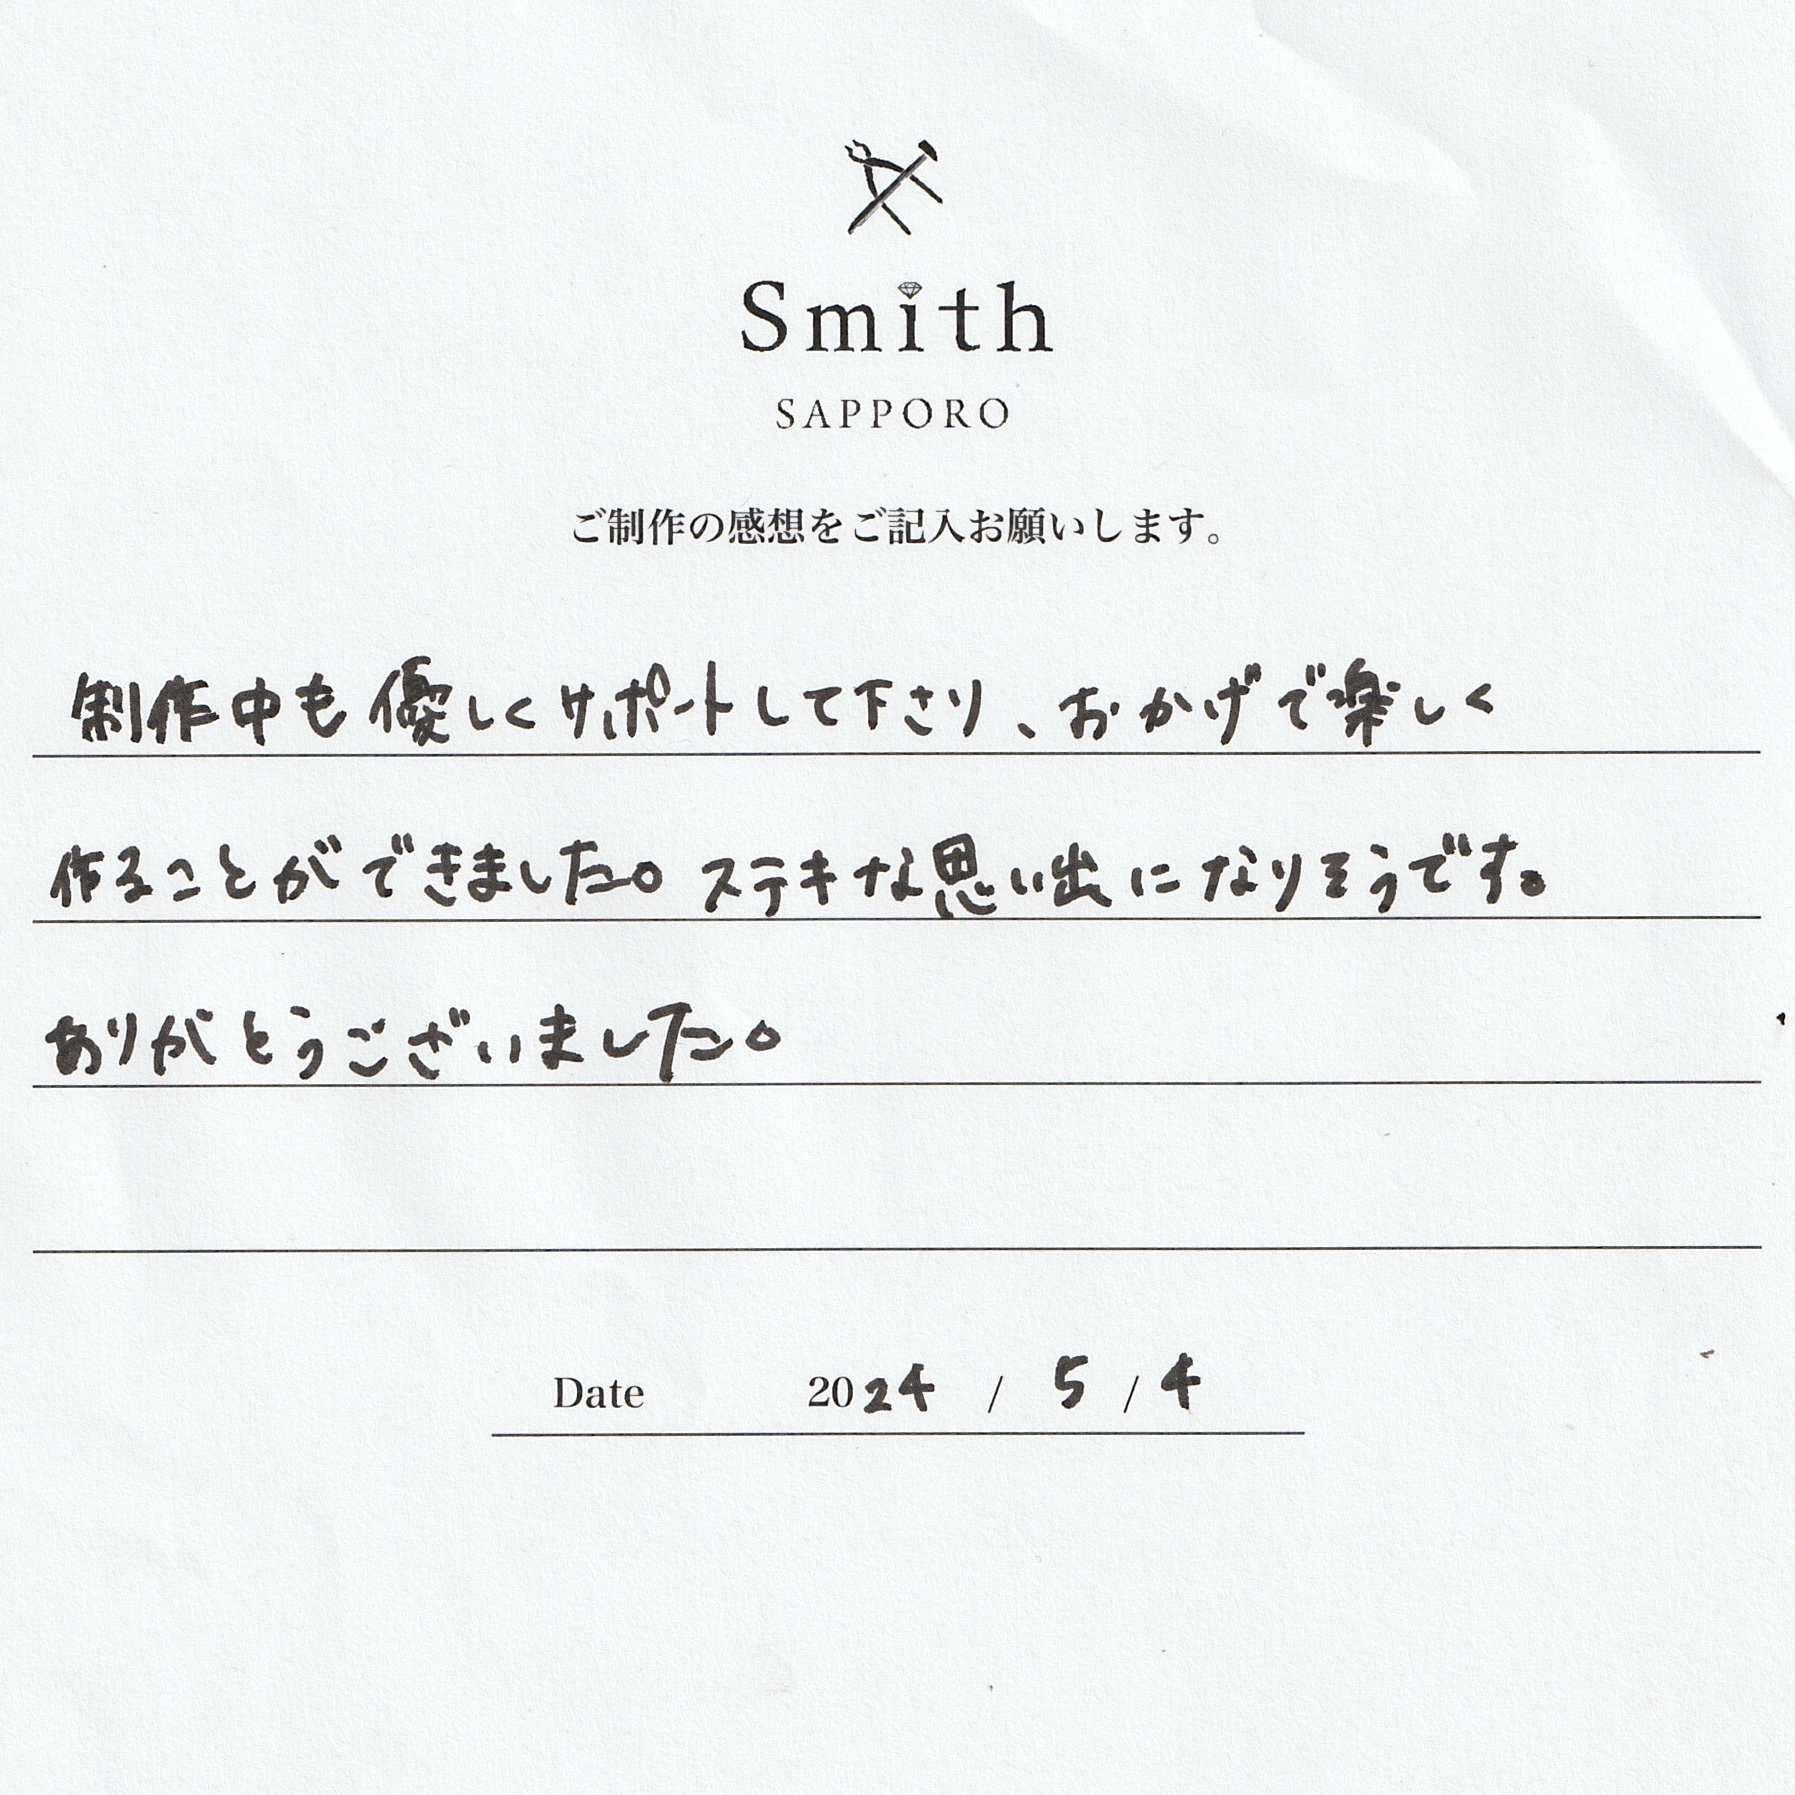 Smith
SAPPORO
ご制作の感想をご記入お願いします。
制作中も優しくサポートして下さり、おかげで楽しく
作ることができました。ステキな思い出になりそうです。
ありがとうございました。
Date 2024 / 5 / 4